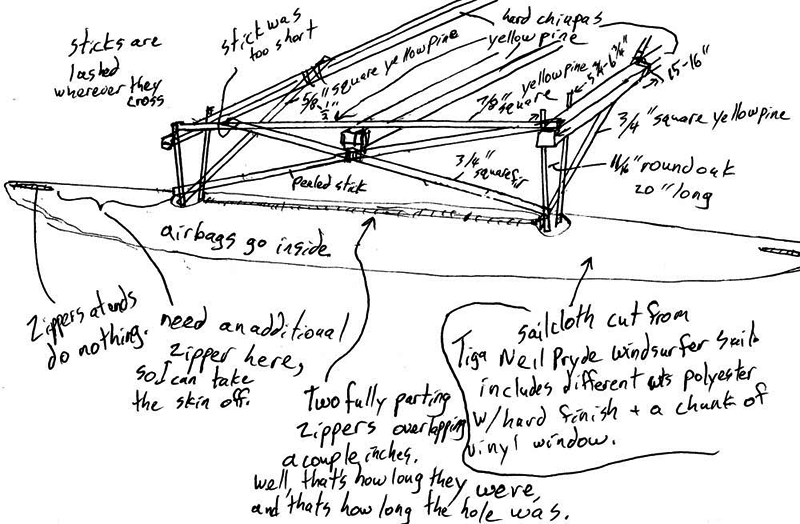 sticks are
lashed
wherever they
cross
stick was
too short
hard chiapas
yellow pine
5/8" square yellow pine
1/2"
yellow pine
7/8" square
5 3/4-6 3/4"
15-16"
3/4" square yellow pine
3/4"
square fir
11/16" round oak
20" long
peeled stick
airbags go inside
Zippers at ends
do nothing.
need an additional
zipper here,
so I can take
the skin off.
Two fully parting
zippers overlapping
a couple inches.
well, that's how long they were,
and thats how long the hole was.
sailcloth cut from
Tiga Neil Pryde windsurfer sail
includes different wts polyester
w/hard finish + a chunk of
vinyl window.